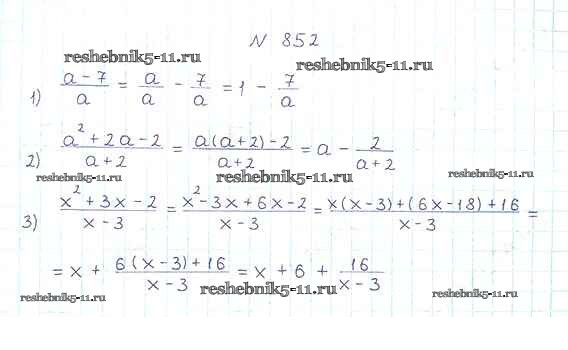 N 852
reshebnik5-11.ru
reshebnik5-11.ru
1) (a - 7)/a = a/a - 7/a = 1 - 7/a
2) (a² + 2a - 2)/(a + 2) = (a(a + 2) - 2)/(a + 2) = a - 2/(a + 2)
reshebnik5-11.ru
reshebnik5-11.ru
reshebnik5-11.ru
3) (x² + 3x - 2)/(x - 3) = (x² - 3x + 6x - 2)/(x - 3) = (x(x - 3) + (6x - 18) + 16)/(x - 3) =
= x + (6(x - 3) + 16)/(x - 3) = x + 6 + 16/(x - 3)
reshebnik5-11.ru
reshebnik5-11.ru
reshebnik5-11.ru